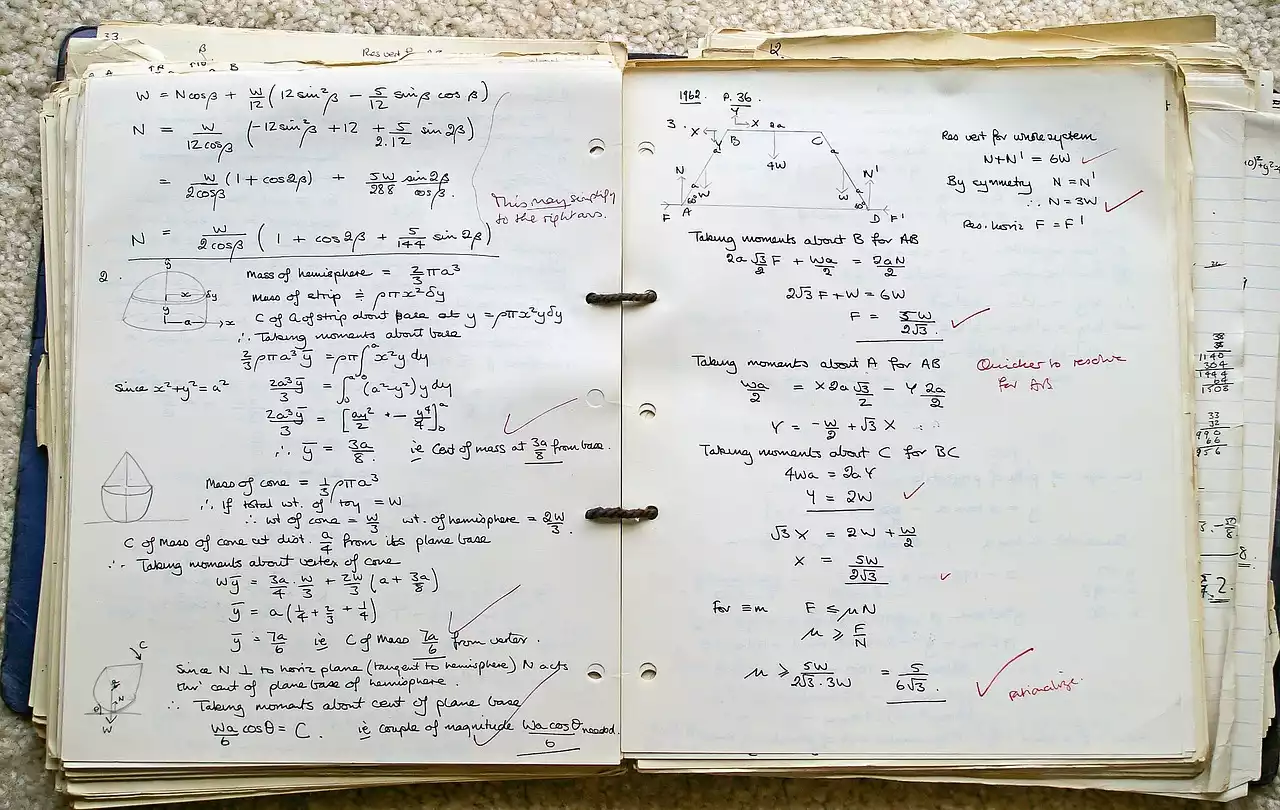 33.
β
Res vert
B
W = N cos β + W/12 (12 sin²β − 5/12 sin β cos β)
N = W/12cosβ (−12 sin²β + 12 + 5/2.12 sin 2β)
= W/2cosβ (1 + cos 2β) + 5W/288 sin 2β/cos β.
This may simplify
to the right ans.
N = W/2cosβ (1 + cos 2β + 5/144 sin 2β)
2.
y
x δy
y
a x
Mass of hemisphere = 2/3 πa³
Mass of strip ≑ ρπx²δy
C of G of strip about base at y = ρπx²yδy
∴ Taking moments about base
2/3 ρπa³ȳ = ρπ∫₀ᵃ x²y dy
Since x²+y² = a² 2a³ȳ/3 = ∫₀ᵃ (a²−y²) y dy
2a³ȳ/3 = [ay²/2 − y⁴/4]₀ᵃ
∴ ȳ = 3a/8 ie Cent of mass at 3a/8 from base.
Mass of cone = 1/3 ρπa³
∴ If total wt. of toy = W
∴ wt of cone = W/3 wt. of hemisphere = 2W/3.
C of Mass of cone at dist. a/4 from its plane base
∴ Taking moments about vertex of cone
Wȳ = 3a/4 . W/3 + 2W/3 (a + 3a/8)
ȳ = a(1/4 + 2/3 + 1/4)
ȳ = 7a/6 ie C of Mass 7a/6 from vertex.
C
N
θ
W
Since N ⊥ to horiz plane (tangent to hemisphere) N acts
thro' cent of plane base of hemisphere.
∴ Taking moments about cent of plane base
Wa/6 cos θ = C. ie couple of magnitude Wa cos θ/6 needed.
12
1962. P. 36.
3.
Y
X X 2a
Y B C
a a
4W
N N'
a a
W W
60° 60°
F A D F'
Res vert for whole system
N+N' = 6W
By symmetry N = N'
∴ N = 3W
Res. horiz F = F'
Taking moments about B for AB
2a √3/2 F + Wa/2 = 2aN/2
2√3 F + W = 6W
F = 5W/2√3.
Taking moments about A for AB
Quicker to resolve
for AB
Wa/2 = X 2a √3/2 − Y 2a/2
Y = −W/2 + √3 X
Taking moments about C for BC
4Wa = 2aY
Y = 2W
√3 X = 2W + W/2
X = 5W/2√3
For ≡m F ≤ μN
μ ≥ F/N
μ ≥ 5W/2√3.3W = 5/6√3.
rationalize.
38
1140
304
1444
64
1508
33
32
990
66
956
8.
2.